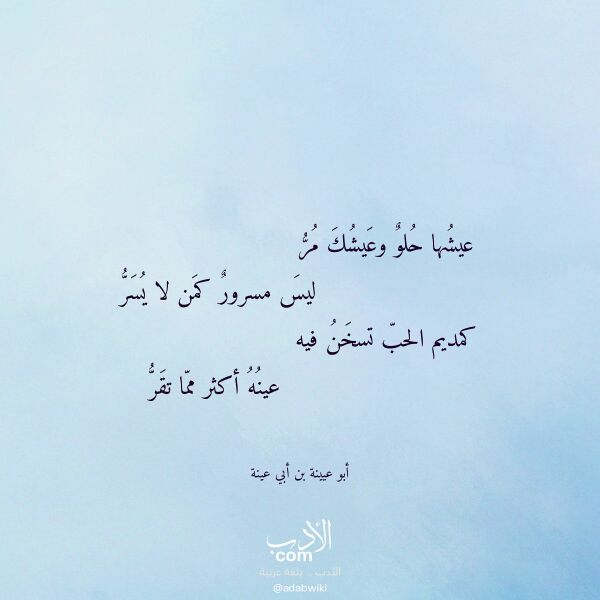 عيشُها حُلوٌ وعَيشُكَ مُرُّ
ليسَ مسرورٌ كمَن لا يُسَرُّ
كمديم الحبّ تسخَنُ فيه
عينُهُ أكثر ممّا تقَرُّ
أبو عيينة بن أبي عينة
الأدب
com
الأدب .. بلغة عربية
@adabwiki